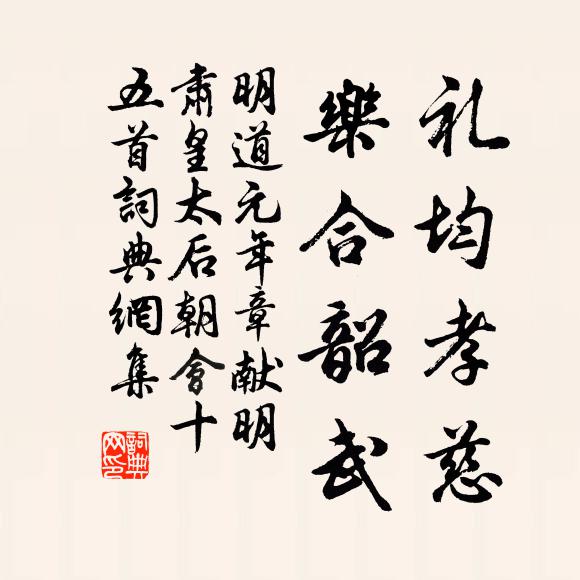 礼均孝慈
樂合韶武
明道元年章献明
肅皇太后朝會十
五首詞典網集
詞典
网印